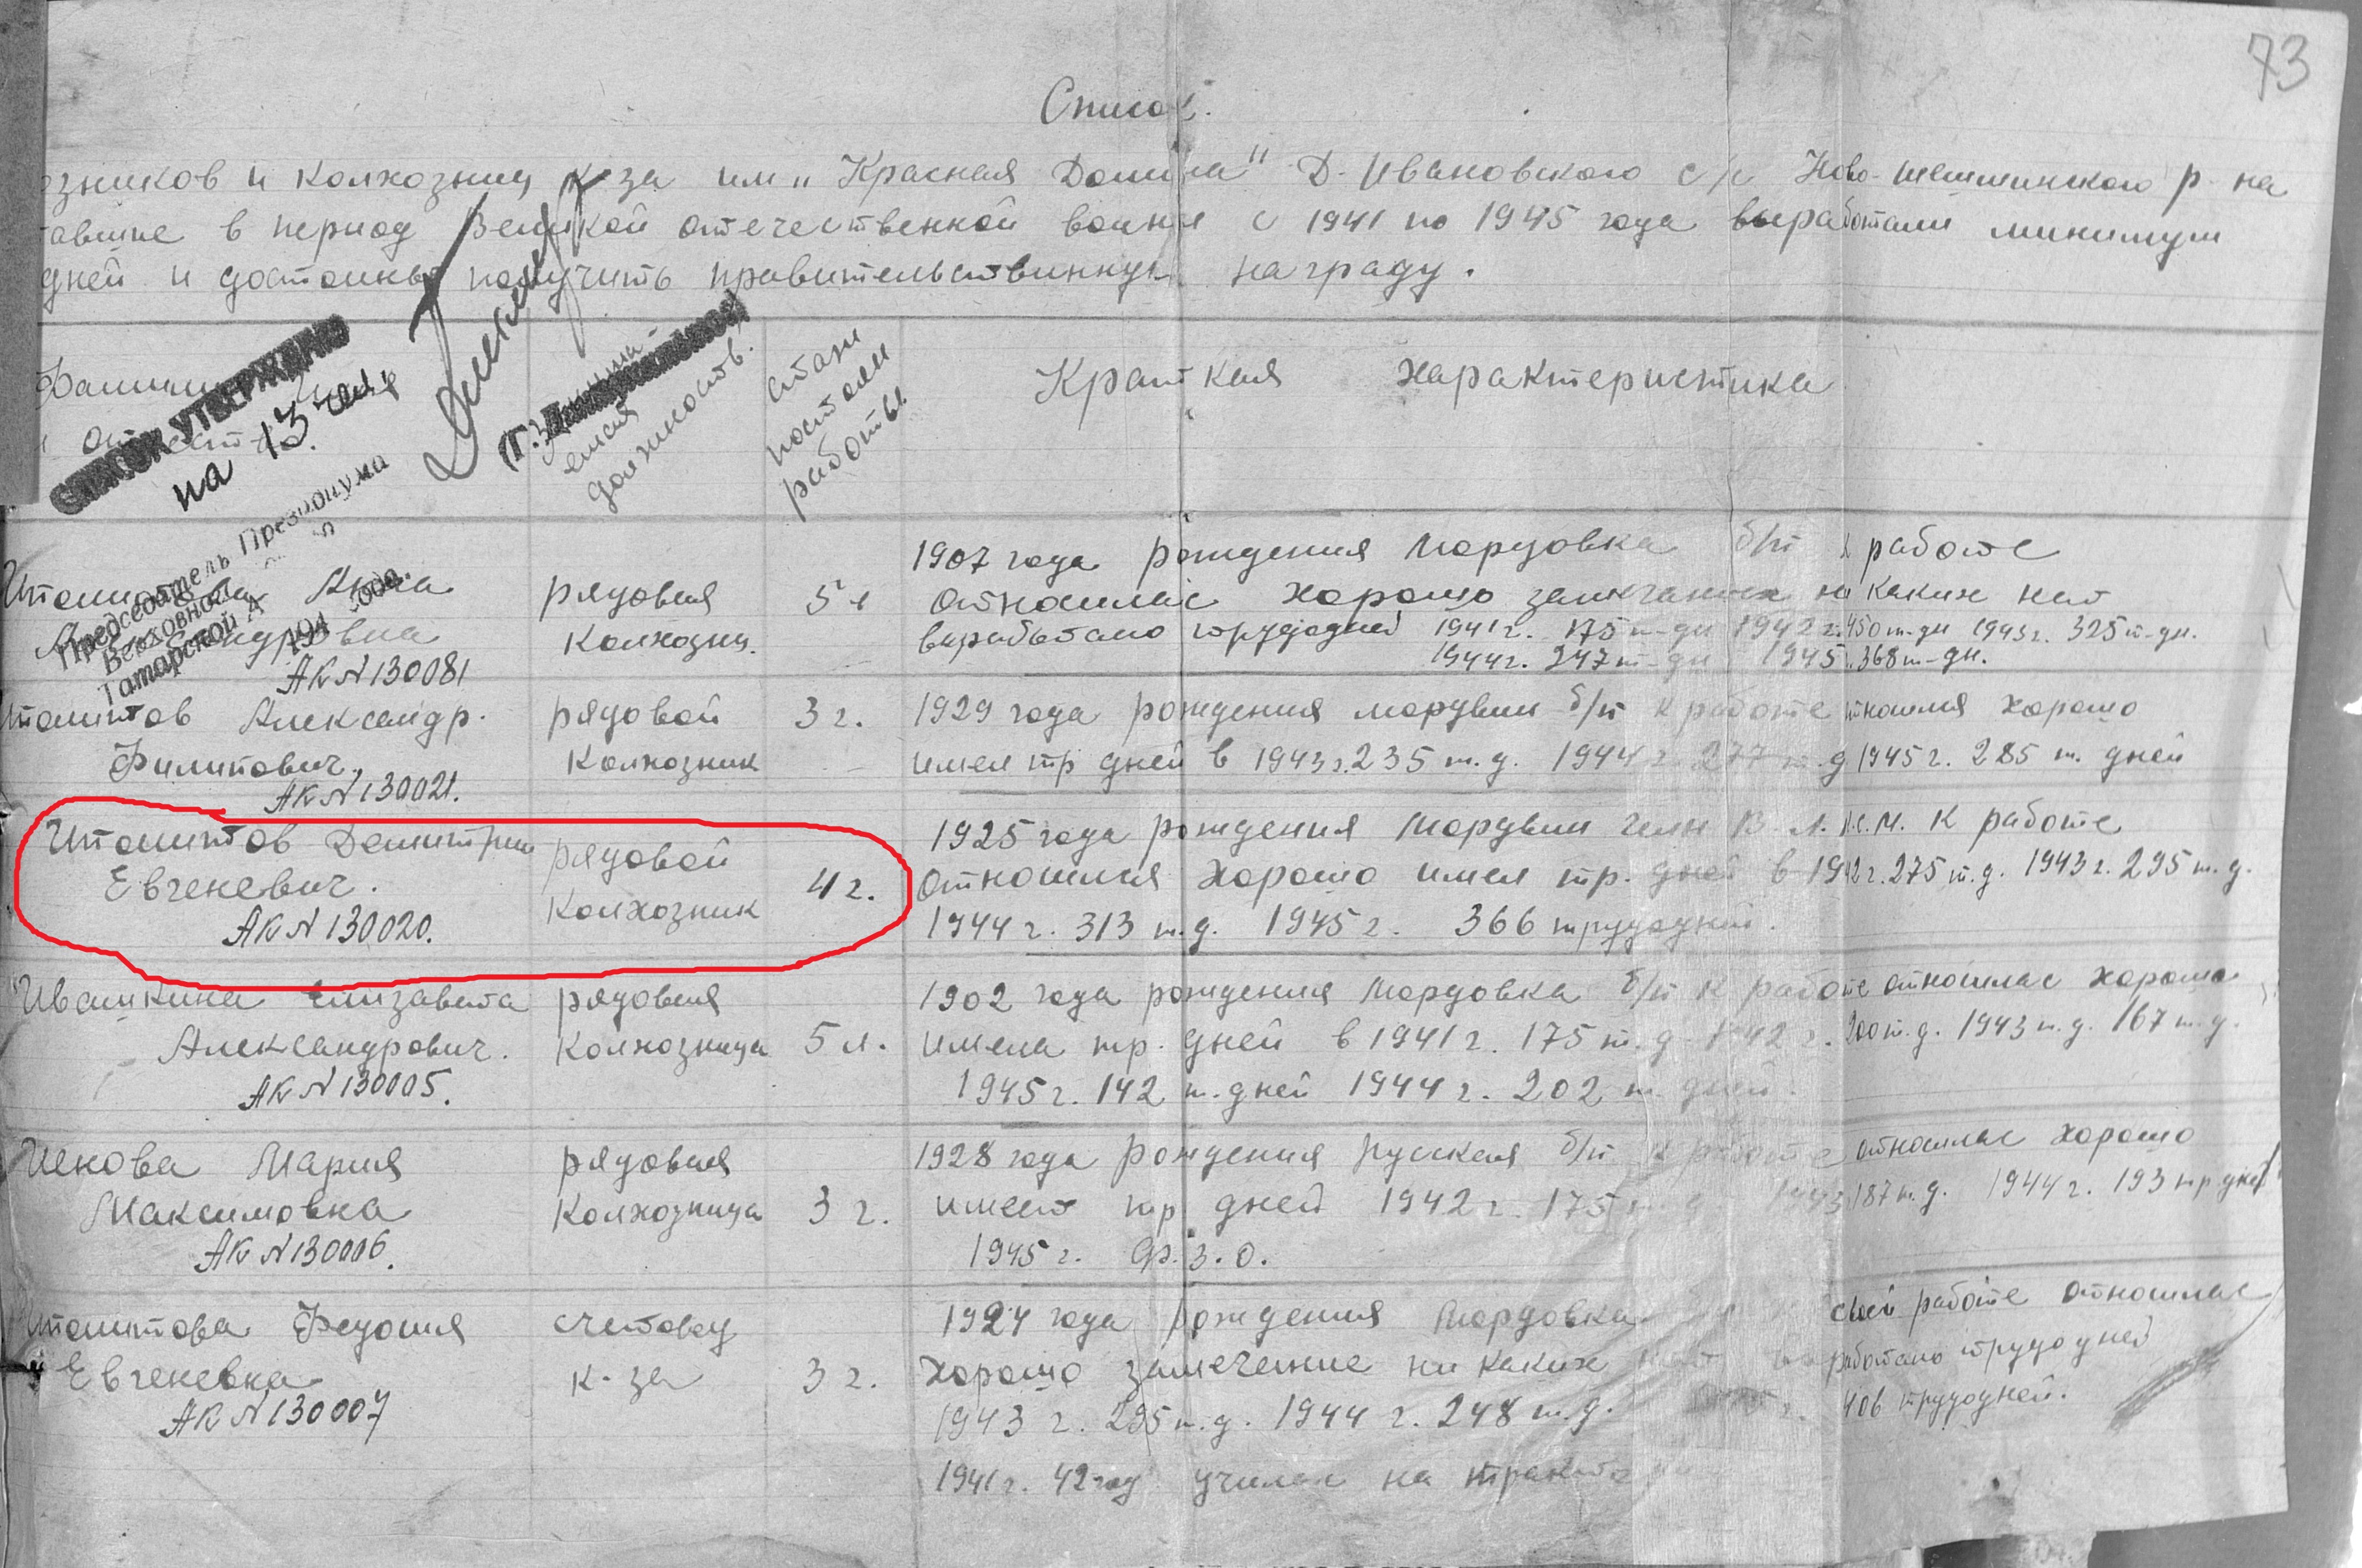 73
Список.
озников и колхозниц к-за им „Красная Долина" Д-Ивановского с/с Ново-шешминского р-на
тавшие в период Великой отечественной воины с 1941 по 1945 года выработали минимум
дней и достойны получить правительствинную награду.
Фамилия имя
отчество.
должность.
стаж
работы
Краткая характеристика
СПИСОК УТВЕРЖДЕНО
на 13 чел.
Председатель Президиума
Верховного
Татарской А
194 года.
Ипатова Анна
АК N 130081
рядовая
Колхозни.
1907 года рождения мордовка б/п к работе
относилас хорошо замечания ни каких нет
вырабатано трудодней 1941 г. 175 т-дн 1942 г. 450 т-дн 1943 г. 325 т-дн.
1944 г. 247 т-дн 1945 368 т-дн.
Александр
Филипович.
АК N 130021.
рядовой
Колхозник
3 г.
1929 года рождения мордвин б/п к работе относился хорошо
имел тр дней в 1943 г. 235 т.д. 1944 г. 277 т.д 1945 г. 285 т. дней
Демитрий
Евгеневич.
АК N 130020.
рядовой
Колхозник
4 г.
1925 года рождения мордвин член В.Л.К.С.М. к работе
относился хорошо имел тр. дней в 1942 г. 275 т.д. 1943 г. 295 т.д.
1944 г. 313 т.д. 1945 г. 366 трудодней.
Ивашкина Елизавета
Александрович.
АК N 130005.
рядовая
Колхозница
5 л.
1902 года рождения мордовка б/п к работе относилас хорошо
имела тр. дней в 1941 г. 175 т.д 1942 г. 200 т.д. 1943 т.д. 167 т.д.
1945 г. 142 т. дней 1944 г. 202 т. дней.
Мария
Максимовна
АК N 130006.
рядовая
Колхозница
3 г.
1928 года рождения русская б/п к работе относилас хорошо
имеет тр. дней 1942 г. 175 т.д. 1943 187 т.д. 1944 г. 193 тр дней
1945 г. Ф.З.О.
Федосия
Евгеневна
АК N 130007
счетовод
к-за
3 г.
1924 года рождения мордовка своей работе относилас
хорошо замечание ни каких нет выработано трудодней
1943 г. 295 т.д. 1944 г. 248 т.д. 406 трудодней.
1941 г. 42 год училас на